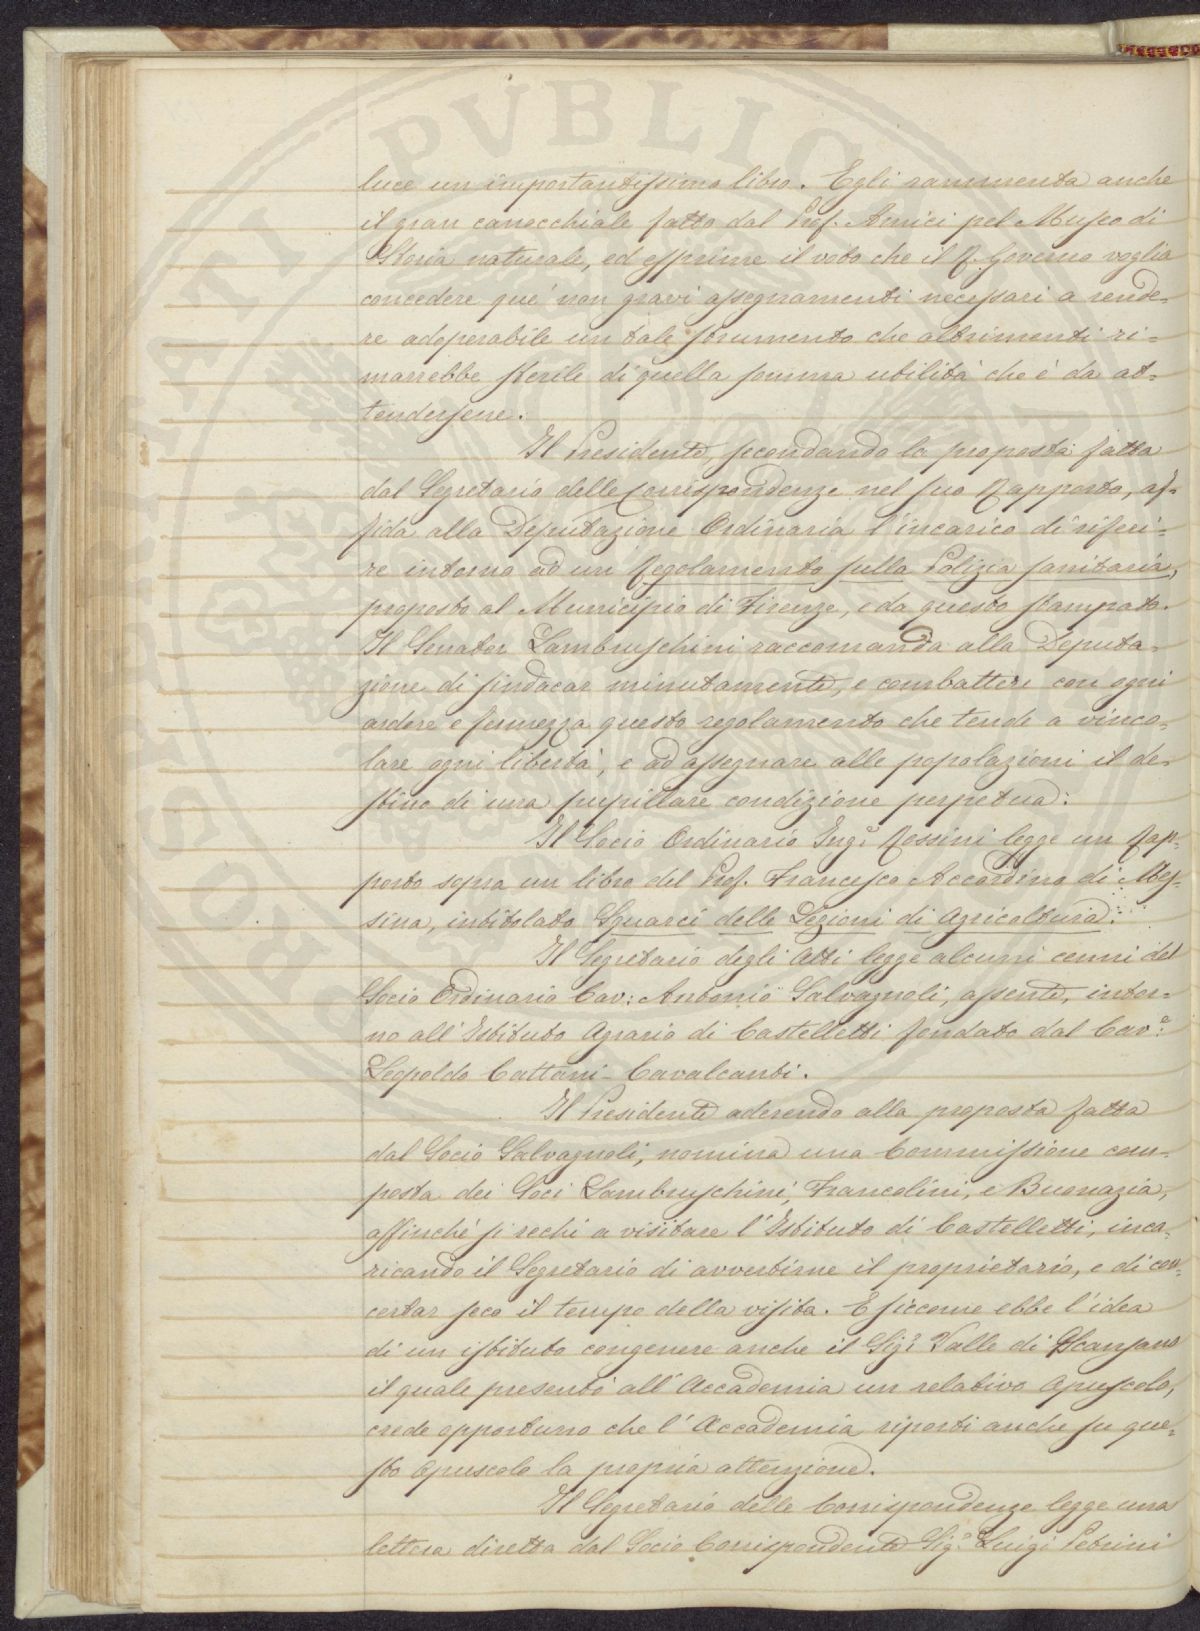 luce un importantissimo libro. Egli rammenta anche
il gran canocchiale fatto dal Prof. Amici pel Museo di
Storia naturale, ed esprime il voto che il R. Governo voglia
concedere que' non gravi assegnamenti necessari a rende-
re adoperabile un tale strumento che altrimenti ri-
marrebbe sterile di quella somma utilità che è da at-
tendersene.
Il Presidente, secondando la proposta fatta
dal Segretario delle Corrispondenze nel suo Rapporto, af-
fida alla Deputazione Ordinaria l'incarico di riferi-
re intorno ad un Regolamento sulla Polizia sanitaria,
proposto al Municipio di Firenze, e da questo stampato.
Il Senator Lambruschini raccomanda alla Deputa-
zione di sindacar minutamente, e combattere con ogni
ardore e fermezza questo regolamento che tende a vinco-
lare ogni libertà, e ad assegnare alle popolazioni il de-
stino di una pupillare condizione perpetua.
Il Socio Ordinario Ing.e Rossini legge un Rap-
porto sopra un libro del Prof. Francesco Accordino di Mes-
sina, intitolato Squarci delle Lezioni di Agricoltura.
Il Segretario degli Atti legge alcuni cenni del
Socio Ordinario Cav: Antonio Salvagnoli, assente, intor-
no all'Istituto Agrario di Castelletti fondato dal Cav.e
Leopoldo Cattani-Cavalcanti.
Il Presidente aderendo alla proposta fatta
dal Socio Salvagnoli, nomina una Commissione com-
posta dei Soci Lambruschini, Francolini, e Buonazia,
affinché si rechi a visitare l'Istituto di Castelletti, inca-
ricando il Segretario di avvertirne il proprietario, e di con-
certar seco il tempo della visita. E siccome ebbe l'idea
di un istituto congenere anche il Sig.r Valle di Scansano
il quale presentò all'Accademia un relativo Opuscolo,
crede opportuno che l'Accademia riporti anche su que-
sto Opuscolo la propria attenzione.
Il Segretario delle Corrispondenze legge una
lettera diretta dal Socio Corrispondente Sig.r Luigi Petrini